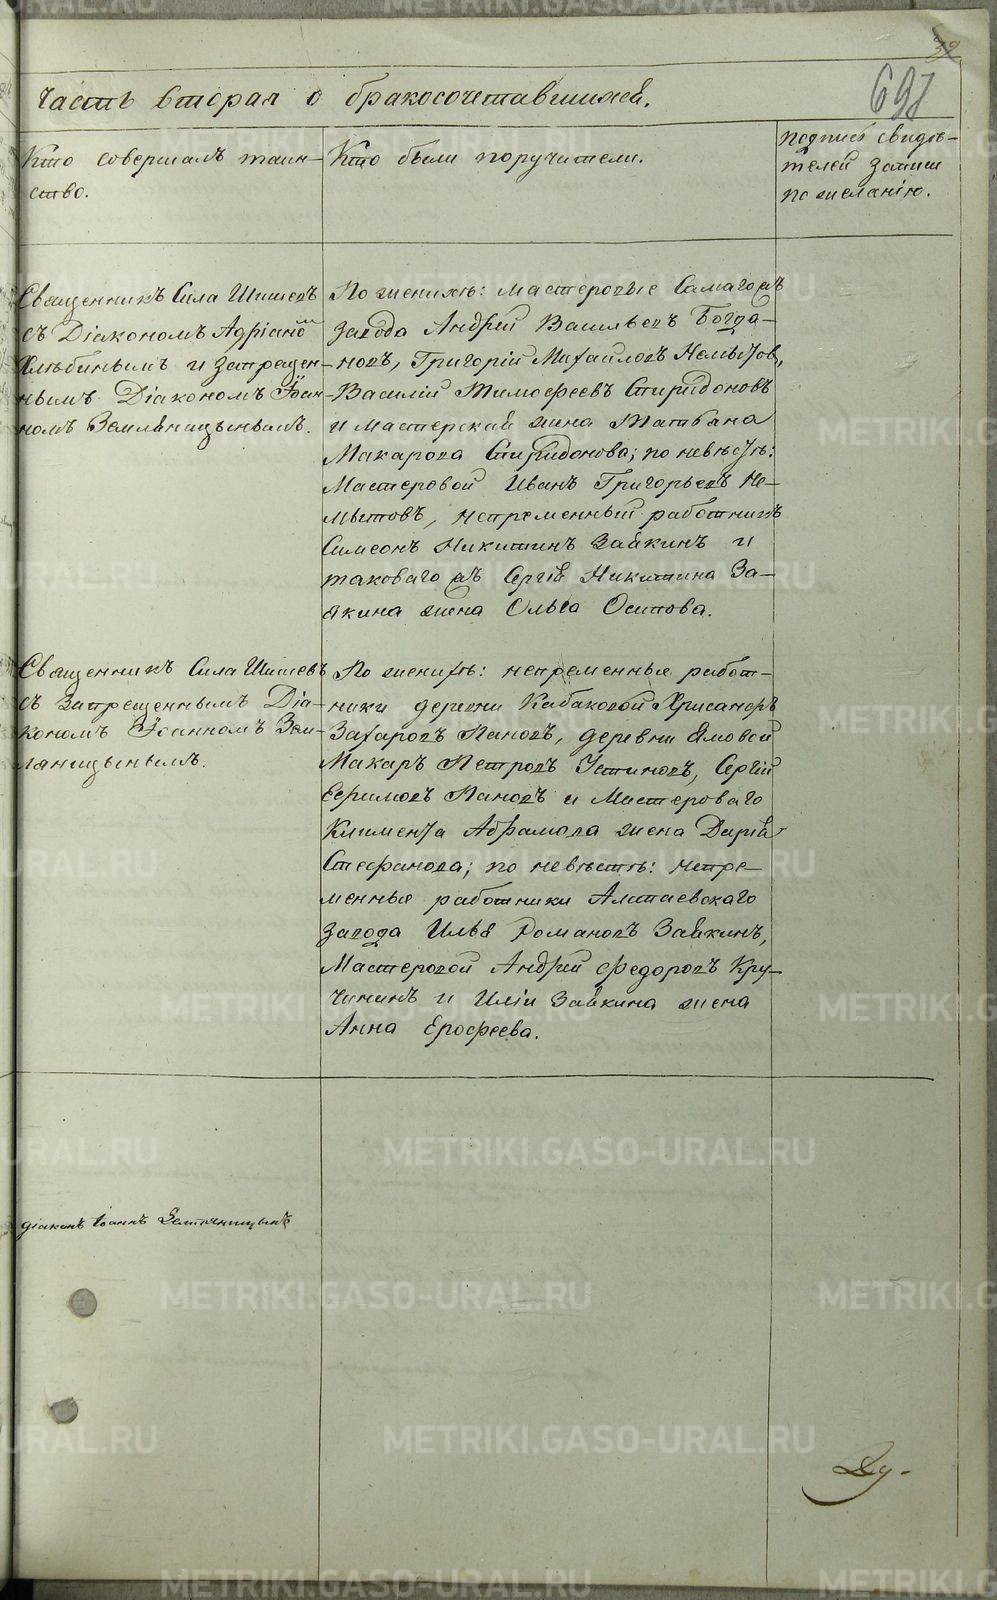 39
697
Часть вторая о бракосочетавшихся.
Кто совершалъ таин-
ство.
Кто были поручители.
подпись свидѣ-
телей записи
по желанію.
Священникъ Сила Шишевъ
съ Діакономъ Адріаном
Хлѣбинымъ и запрещен-
нымъ Діакономъ Іоан-
номъ Земляницынымъ.
По женихѣ: мастеровые Самаго жъ
завода Андрей Васильевъ Богда-
новъ, Григорій Михайловъ Немытов,
Василій Тимофеевъ Спиридоновъ
и мастерская жена Татьяна
Макарова Спиридонова; по невѣстѣ:
Мастеровой Иванъ Григорьевъ Не-
мытовъ, непременный работникъ
Симеонъ Никитинъ Заякинъ и
таковаго жъ Сергія Никитина За-
якина жена Ольга Осипова.
Священникъ Сила Шишевъ
съ запрещеннымъ Діа-
кономъ Іоанномъ Зем-
ляницынымъ.
По женихѣ: непременные работ-
ники деревни Кабаковой Хрисанфъ
Захаровъ Пановъ, деревни Ямовой
Макаръ Петровъ Устиновъ, Сергій
Ефимовъ Пановъ и Мастероваго
Климента Абрамова жена Дарія
Стефанова; по невѣстѣ: непре-
менные работники Алапаевскаго
завода Илья Романовъ Заякинъ,
Мастеровой Андрей Федоровъ Кру-
чининъ и Иліи Заякина жена
Анна Ерофеева.
діаконъ Іоаннъ Земляницынъ